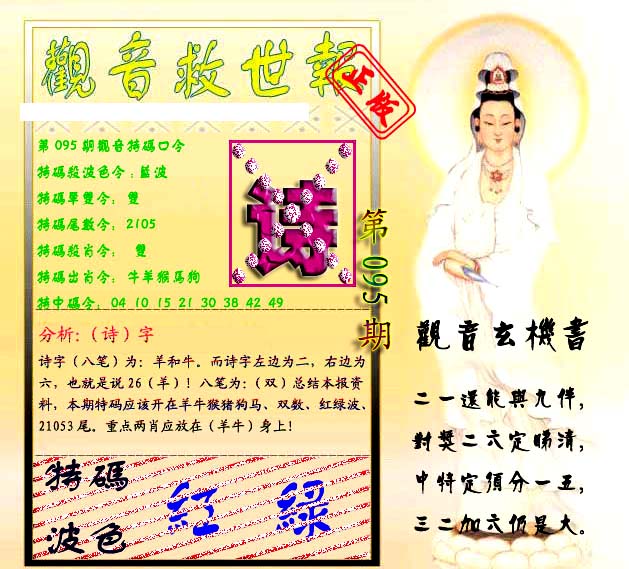 觀音救世報
正版
第095期觀音特碼口令
特碼殺波色令:藍波
特碼單雙令: 雙
特碼尾數令: 2105
特碼殺肖令: 雙
特碼出肖令: 牛羊猴馬狗
特中碼令: 04 10 15 21 30 38 42 49
诗
第095期
分析:(诗)字
诗字(八笔)为:羊和牛。而诗字左边为二,右边为
六,也就是说26(羊)!八笔为:(双)总结本报资
料,本期特码应该开在羊牛猴猪狗马、双数、红绿波、
21053尾。重点两肖应放在(羊牛)身上!
特碼
波色
紅 綠
觀音玄機書
二一還能與九伴,
對獎二六定睇清,
中特定須分一五,
三二加六仍是大。